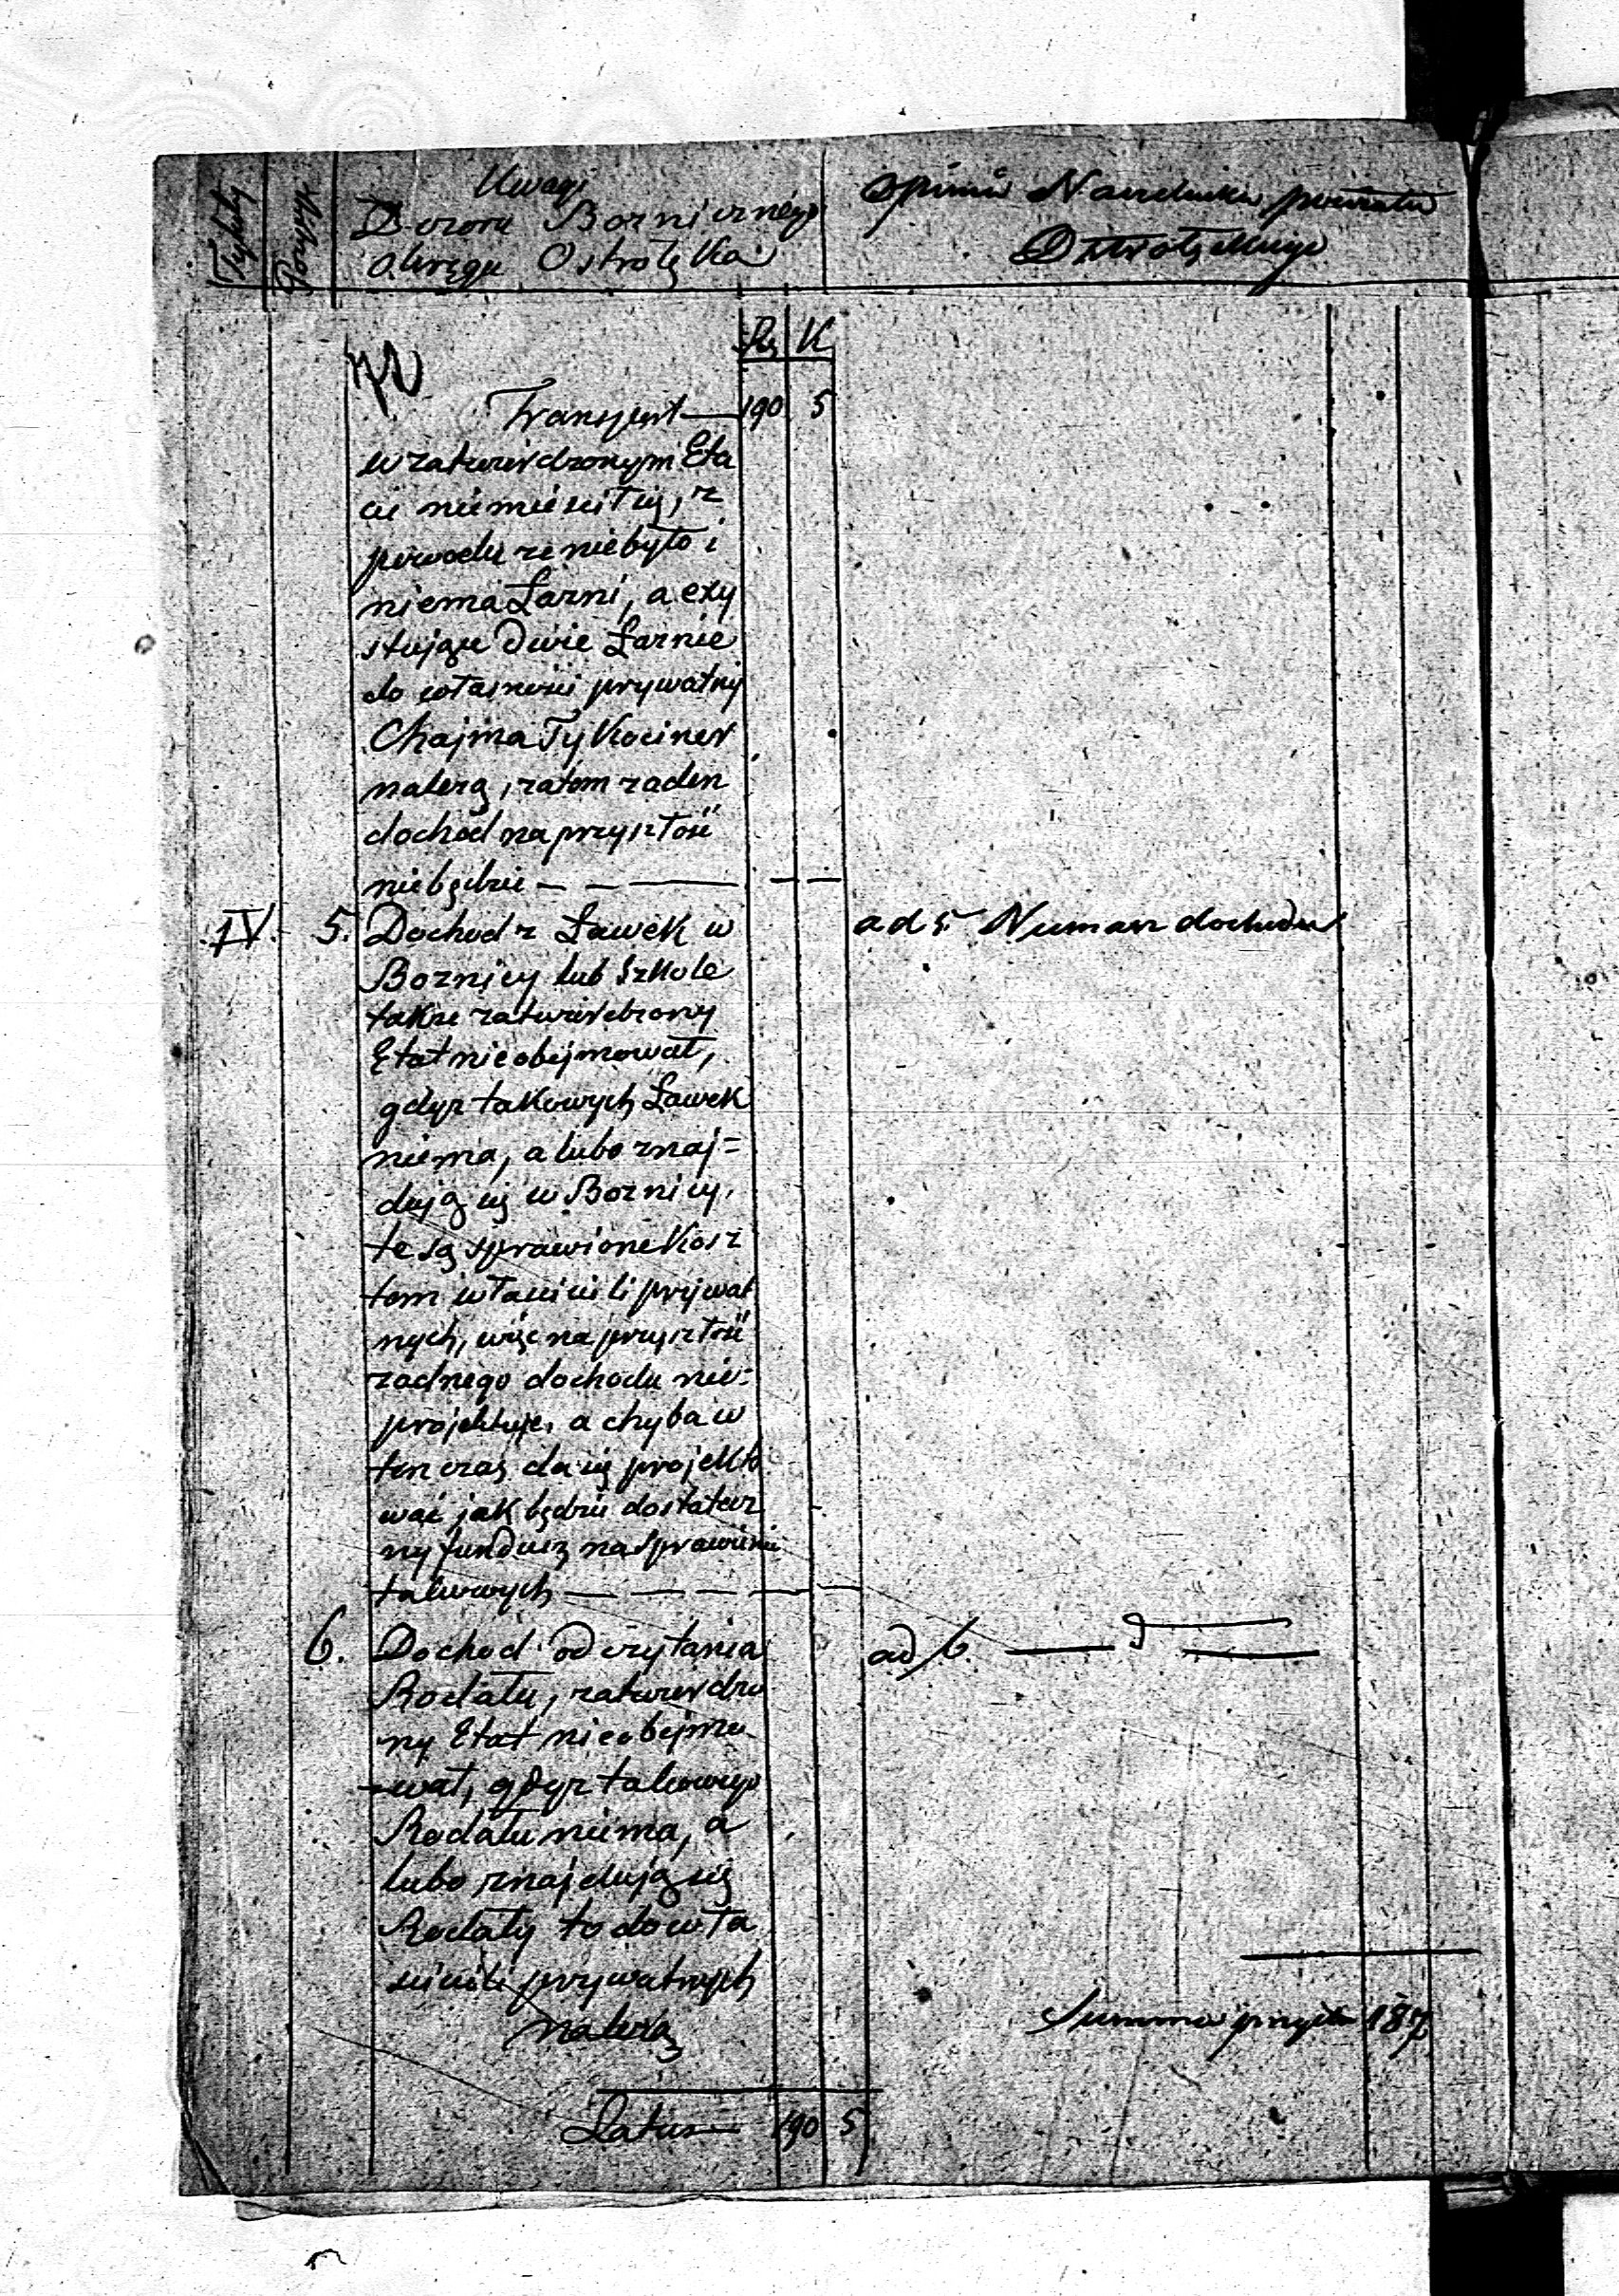 Tytuły
Uwagi
Dozoru Bożnicznego
Okręgu Ostrołęka
Opinia Naczelnika powiatu
Ostrołęckiego
Rs K
Transport 190 5
w zatwierdzonym Eta
cie niemieścił się, z
powodu że niebyło i
niema Łaźni, a exy
stujące Dwie Łaźnie
do własności prywatnéj
Chajma Tykociner
należą, zatem żaden
dochód na przyszłość
niebędzie — — —
IV. 5. Dochod z Ławek w
Boznicy lub Szkole
także zatwierdzony
Etat nieobejmował,
gdyż takowych Ławek
niema, a lubo znaj=
dują się w Boznicy,
te są sprawione Kosz
tem właścicieli prywat
nych, więc na przyszłość
żadnego dochodu nie=
projektuje, a chyba w
ten czas da się projekto
wać jak będzie dostatecz
ny fundusz na sprawienie
takowych — — — —
ad 5. Niemasz dochodu
6. Dochod od czytania
Rodału, zatwierdzo
ny Etat nieobejmo
wał, gdyż takowego
Rodału niema, a
lubo znajdują się
Rodały to do wła
ścicieli prywatnych
należą
ad 6. — —
Summa 187
Latus 190 5